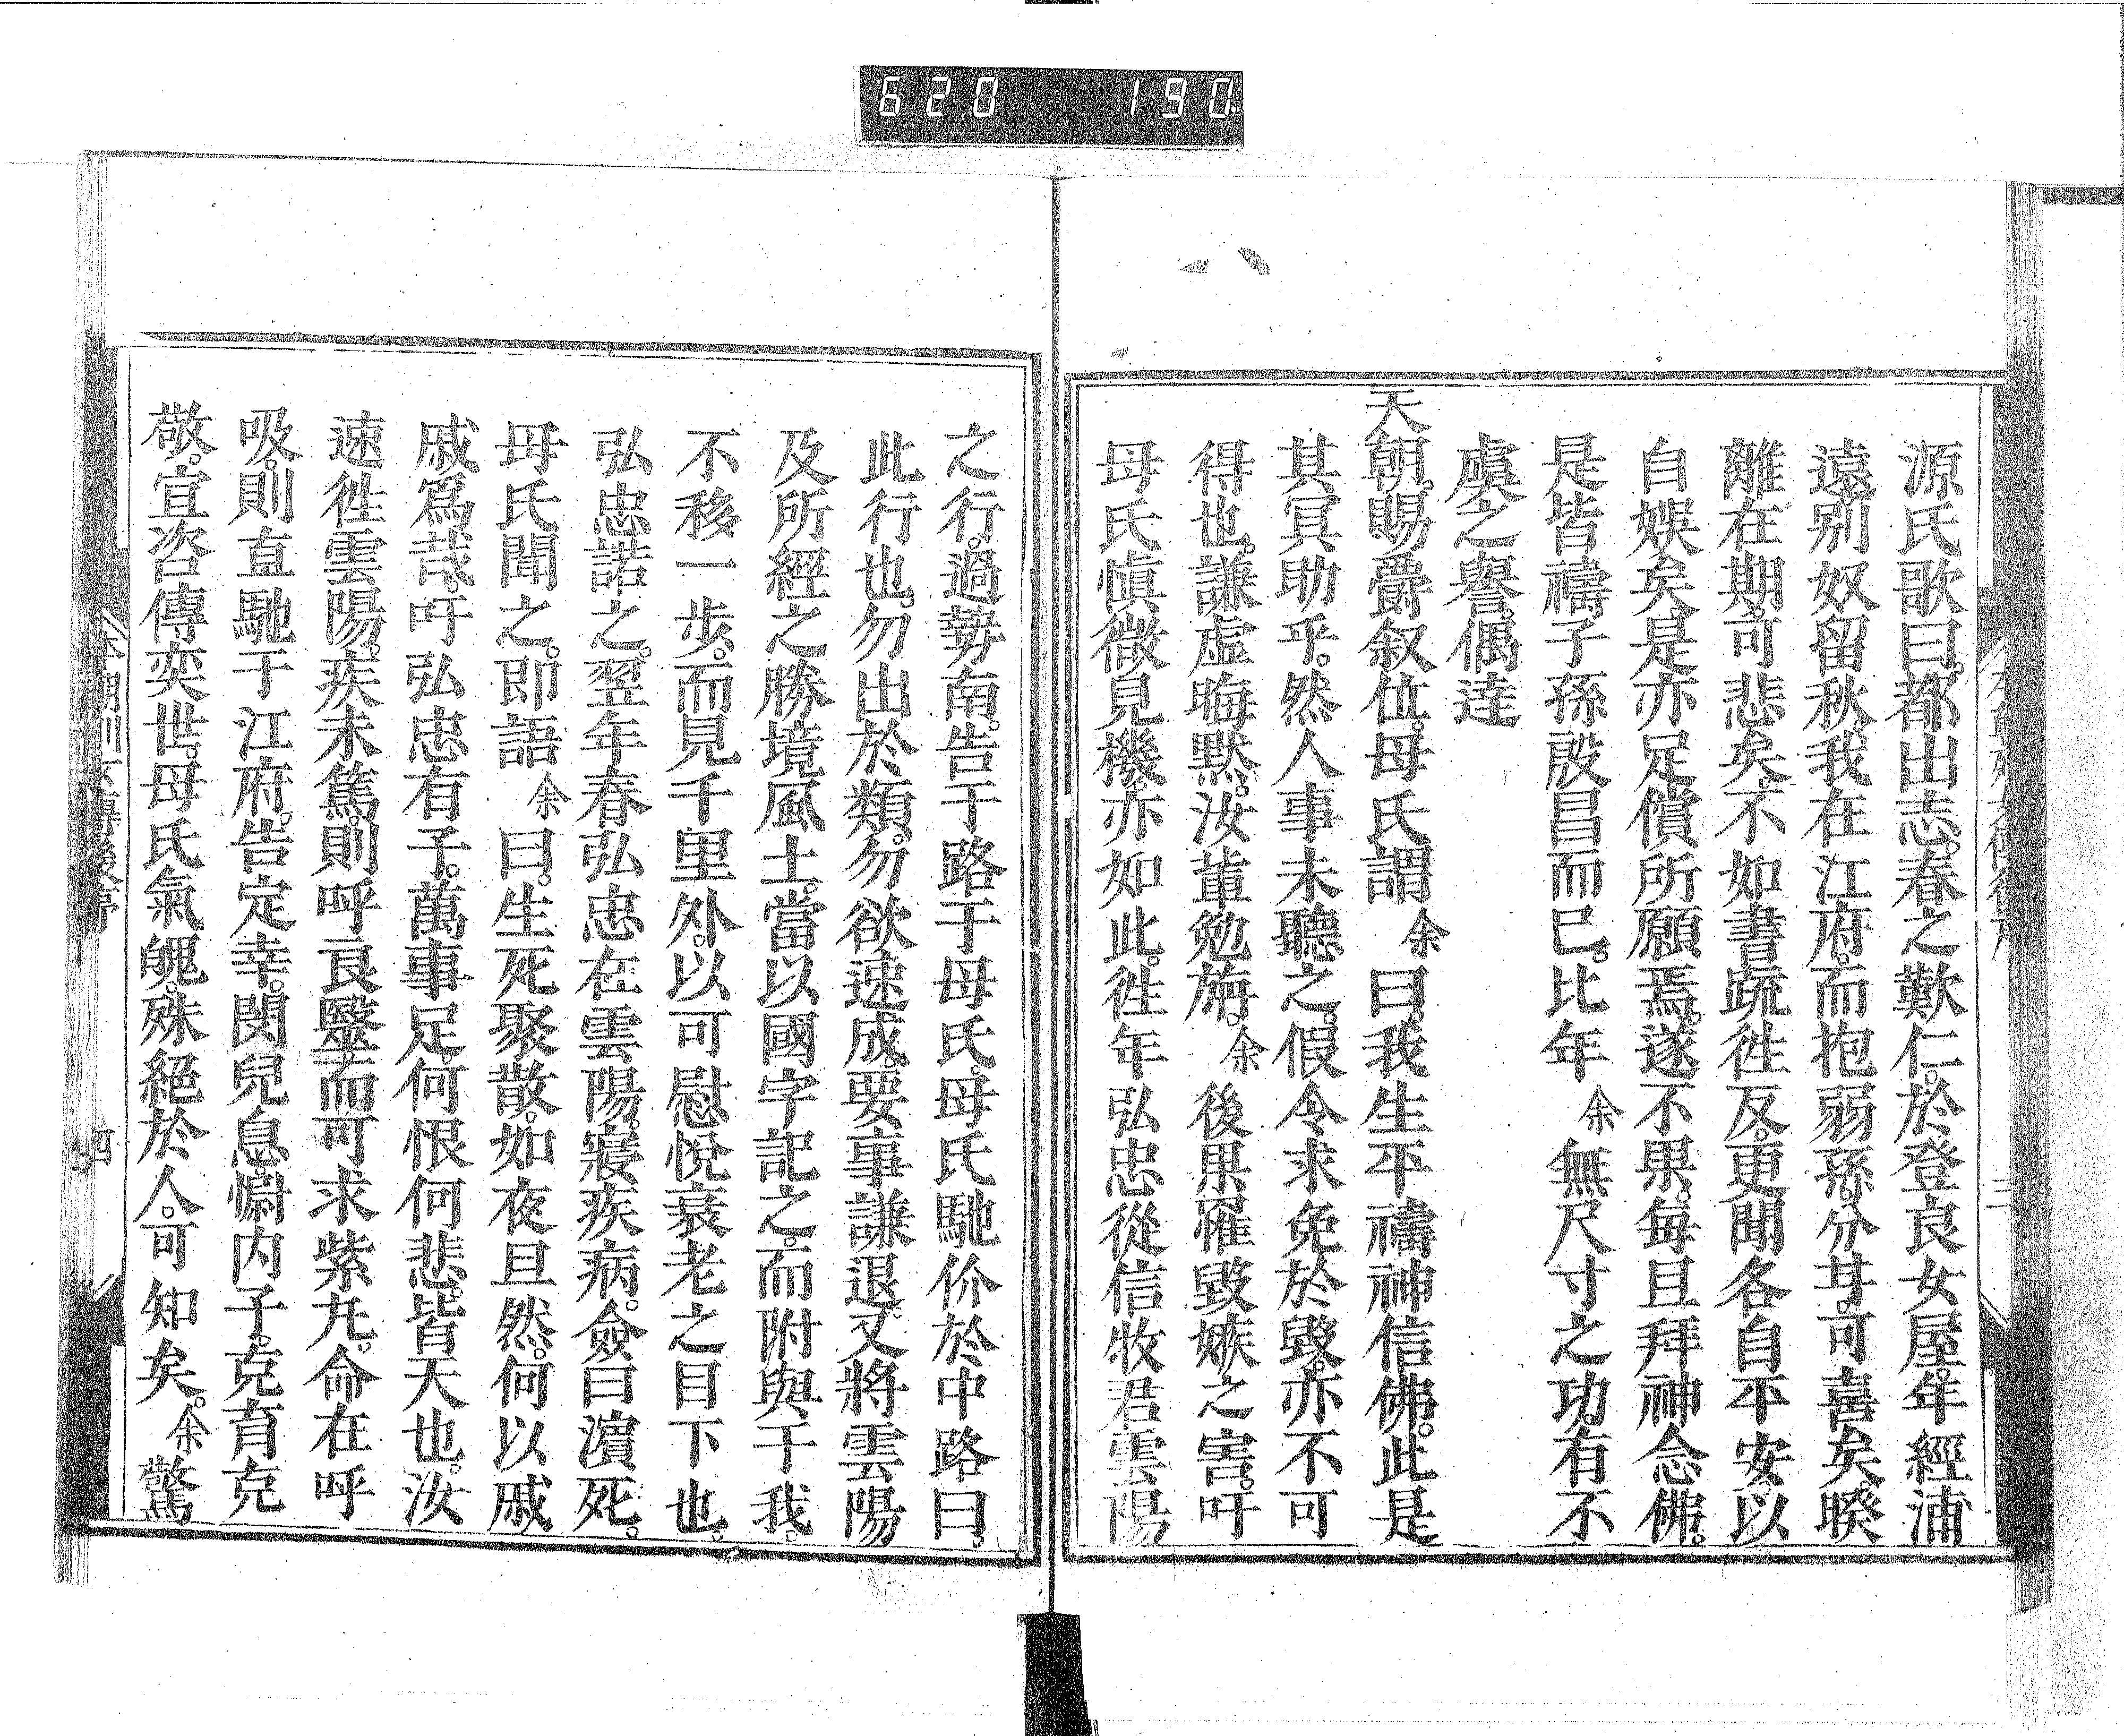 620 190
源氏歌曰。都出志。春之歎仁。於登良女屋。年經浦
遠別奴留秋。我在江府。而抱弱孫。分甘。可喜矣。暌
離在期。可悲矣。不如書疏徃反。更聞各自平安。以
自娯矣。是亦足償所願焉。遂不果。每旦拜神念佛。
是皆禱子孫殷昌而已。比年余無尺寸之功。有不
虞之譽。偶逹
天朝。賜爵叙位。母氏謂余曰。我生平禱神信佛。此是
其冥助乎。然人事未聽之。假令求免於毀。亦不可
得也。謙虛晦默。汝輩勉旃。余後果罹毀嫉之害。吁
母氏愼微見機。亦如此。徃年弘忠從信牧君雲陽
之行。過勢南。告于路于母氏。母氏馳价於中路曰。
此行也。勿出於類。勿欲速成。要事謙退。又將雲陽
及所經之勝境風土。當以國字記之。而附與于我。
不移一步。而見千里外。以可慰悅衰老之目下也。
弘忠諾之。翌年春弘忠在雲陽。寢疾病。僉曰濱死。
母氏聞之。即語余曰。生死聚散。如夜旦然。何以戚
戚爲哉。吁弘忠有子。萬事足。何恨何悲。皆天也。汝
速徃雲陽。疾未篤。則呼良醫而可求紫丸。命在呼
吸。則直馳于江府。告定幸。閔兒息。慟内子。克育克
敬。宜咨傳奕世。母氏氣魄。殊絕於人。可知矣。余驚
四